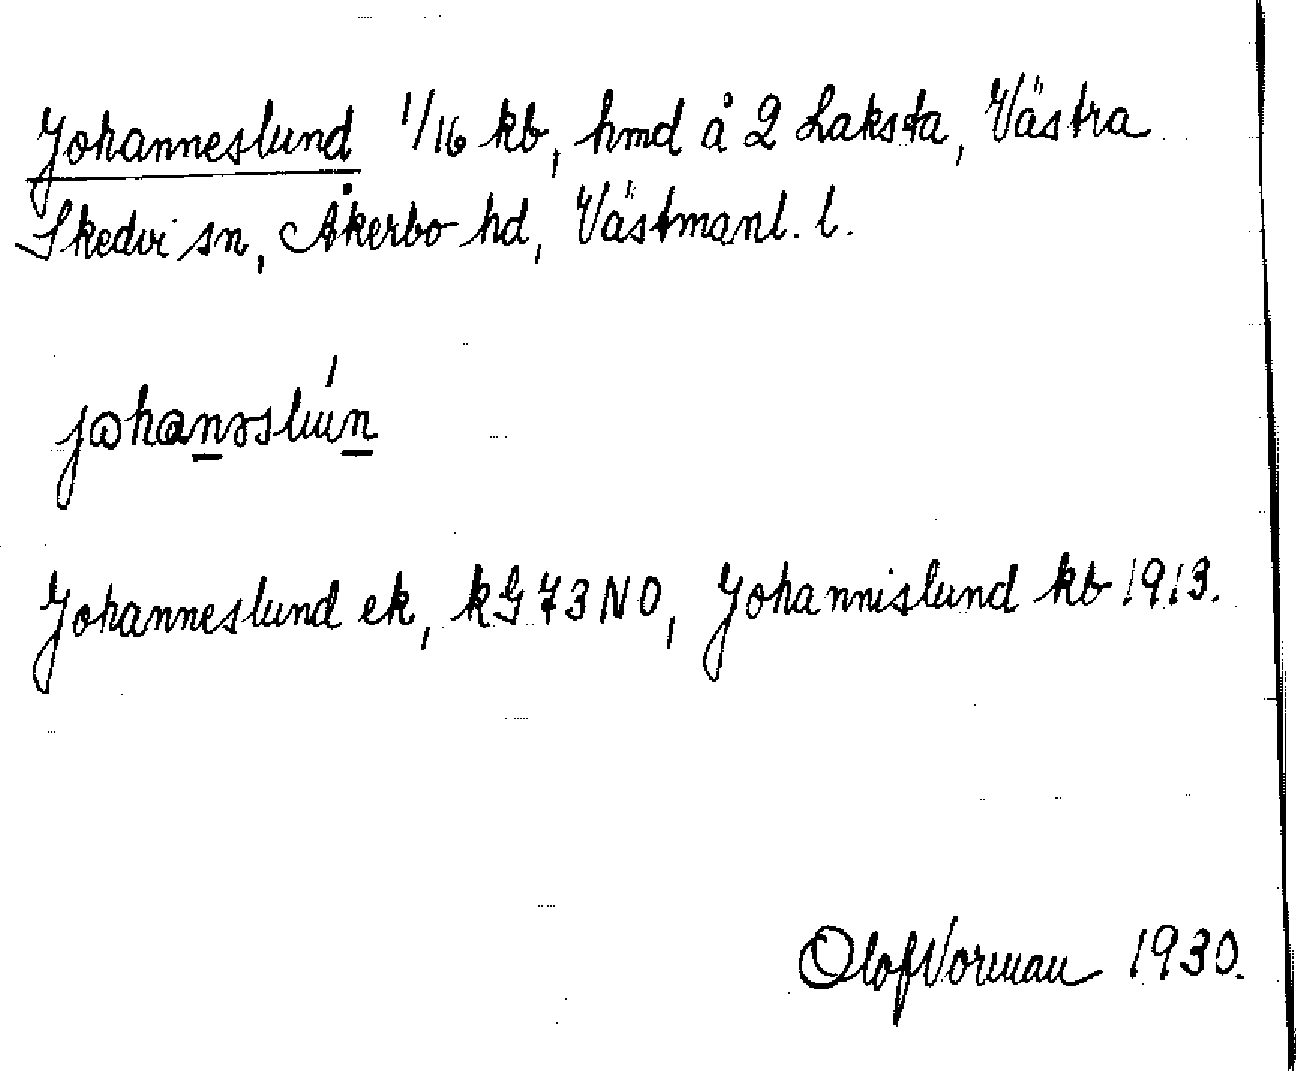 Johanneslund 1/16 kb, hmd å 2 Laksta, Västra
Skedvi sn, Åkerbo hd, Västmanl. l.
johanəslún
Johanneslund ek, kG 73 NO, Johannislund kb 1913.
Olof Vorman 1930.